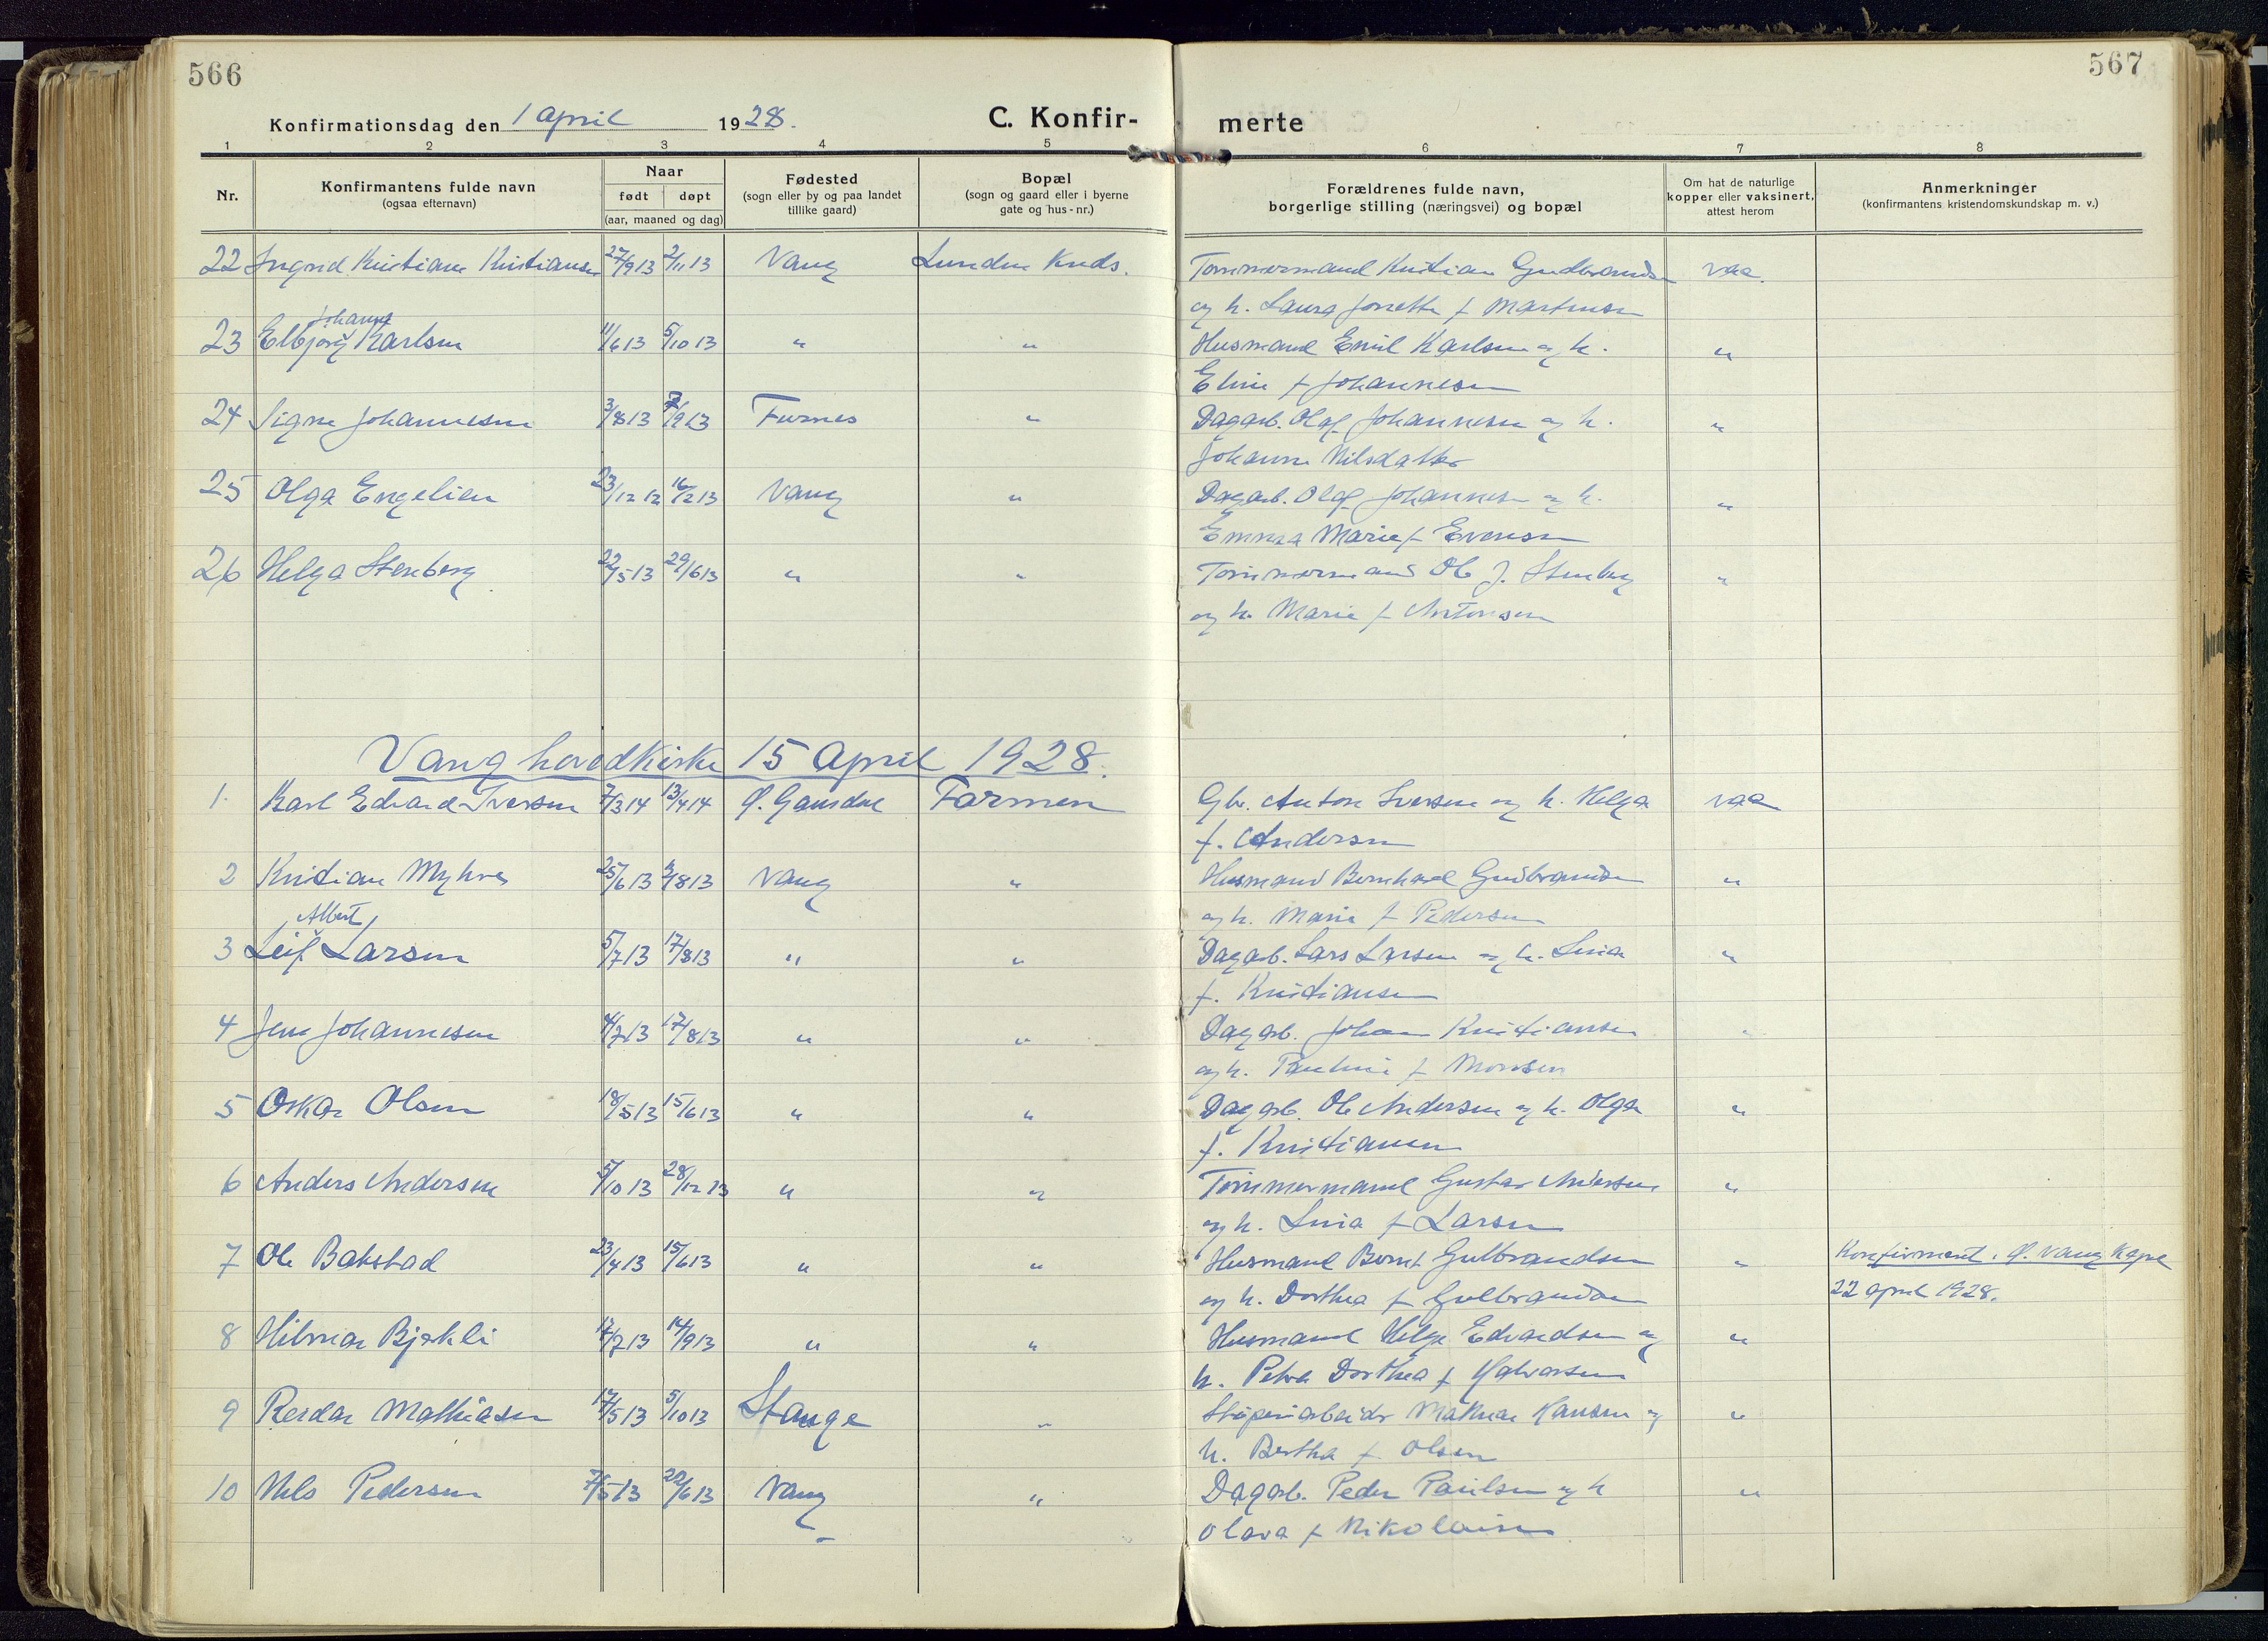 566
567
Konfirmationsdag den 1 april 1928.
C. Konfir-
merte
1 2 3 4 5 6 7 8
Nr.
Konfirmantens fulde navn
(ogsaa efternavn)
Naar
født døpt
(aar, maaned og dag)
Fødested
(sogn eller by og paa landet
tillike gaard)
Bopæl
(sogn og gaard eller i byerne
gate og hus-nr.)
Forældrenes fulde navn,
borgerlige stilling (næringsvei) og bopæl
Om hat de naturlige
kopper eller vaksinert,
attest herom
Anmerkninger
(konfirmantens kristendomskundskap m. v.)
22 Ingrid Kristiane Kristiansen 27/9 13 2/11 13 Vang Lunden Kreds. Tømmermand Kristian Gudbrandsen vaa.
og h. Laura Jonette f Martinsen
Johanne
23 Elbjørg Karlsen 11/6 13 5/10 13 " " Husmand Emil Karlsen og h. "
Eline f Johannesen
24 Signe Johannesen 3/8 13 7/9 13 Furnes " Dagarb. Olaf Johannesen og h. "
Johanne Nilsdatter
25 Olga Engelien 23/12 12 16/2 13 Vang " Dagarb. Olaf Johannesen og h. "
Emma Marie f Evensen
26 Helga Stenberg 22/5 13 29/6 13 " " Tømmermand Ole J. Stenberg "
og h. Marie f Antonsen
Vang hovedkirke 15 april 1928.
1. Karl Edvard Iversen 7/3 14 13/4 14 Ø. Gausdal Farmen Gbr. Anton Iversen og h. Helga vaa
f. Andersen
2 Kristian Myhre 25/6 13 /8 13 Vang " Husmand Bernhard Gudbrandsen "
og h. Marie f Pedersen
Albert
3 Leif Larsen 5/7 13 17/8 13 " " Dagarb. Lars Larsen og h. Lina "
f. Kristiansen
4 Jens Johannesen 4/7 13 17/8 13 " " Dagarb. Johan Kristiansen "
og h. Pauline f Monsen
5 Oskar Olsen 18/5 13 15/6 13 " " Dagarb. Ole Andersen og h. Olga "
f. Kristiansen
6 Anders Andersen 5/10 13 28/12 13 " " Tømmermand Gustav Andersen "
og h. Lina f Larsen
7 Ole Bakstad 23/4 13 15/6 13 " " Husmand Bernt Gulbrandsen " Konfirmert i Ø. Vang Kapel
og h. Dorthea f Gulbrandsen 22 april 1928.
8 Hilmar Bjørkli 17/7 13 14/9 13 " " Husmand Helge Edvardsen og "
h. Petra Dorthea f Halvorsen
9 Reidar Mathiasen 17/5 13 5/10 13 Stange " Støperiarbeider Hansen og "
h. Bertha f Olsen
10 Nils Pedersen 7/5 13 22/6 13 Vang " Dagarb. Peder Paulsen og h "
Olava f Nikolaisen